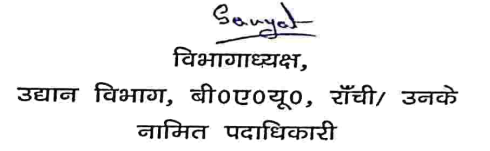 Sanyal
विभागाध्यक्ष,
उद्यान विभाग, बी०ए०यू०, राँची/ उनके
नामित पदाधिकारी